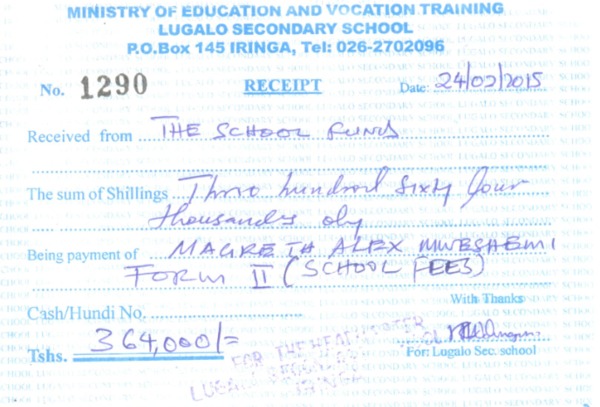 MINISTRY OF EDUCATION AND VOCATION TRAINING
LUGALO SECONDARY SCHOOL
P.O.Box 145 IRINGA, Tel: 026-2702096
No. 1290 RECEIPT Date: 24/02/2015
Received from THE SCHOOL FUNDS
The sum of Shillings Three hundred sixty four
thousands oly
Being payment of MAGRETH ALEX MWESHEMI
FORM II (SCHOOL FEES)
Cash/Hundi No.
With Thanks
Tshs. 364,000/=
FOR THE HEADMASTER
For: Lugalo Sec. school
LUGALO SECONDARY
IRINGA